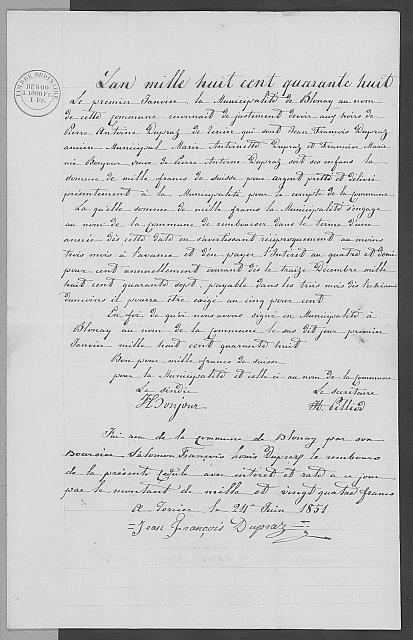 TIMBRE ORDINAIRE
DE 600
à 1000 Fr.
1 Fr.
L'an mille huit cent quarante huit
Le premier Janvier, la Municipalité de Blonay au nom
de cette Commune reconnait de justement devoir aux hoirs de
Pierre Antoine Dupraz de Tercier qui sont Jean François Dupraz
ancien Municipal Marie Antoinette Dupraz et Francoise Marie
née Bonjour veuve de Pierre Antoine Dupraz soit ses enfans la
somme de mille francs de suisse pour argent pretté et délivré
présentement à la Municipalité pour le compte de la Commune
La quelle somme de mille francs la Municipalité s'engage
au nom de la Commune de rembourser dans le terme d'une
année dès cette date en s'avertissant réciproquement au moins
trois mois à l'avance et d'en payer l'Interet au quatre et demi
pour cent annuellement courant dès le traize Décembre mille
huit cent quarante sept, payable dans les trois mois des échéans
d'environs il pourra être exigé au cinq pour cent
En foi de qu'oi nous avons signé en Municipalité à
Blonay au nom de la Commune le sus dit jour premier
Janvier mille huit cent quarante huit
Bon pour mille francs de suisse
pour la Municipalité et celle ci au nom de la Commune
Le sindic Le secrétaire
H Bonjour
J'ai reçu de la Commune de Blonay par son
Boursier Salomon François Louis Dupraz le rembours
de la présente Cédule avec intéret et rata a ce jour
par le montant de mille et vingt quatre francs
A Tercier le 24 Juin 1851
=Jean François Dupraz=